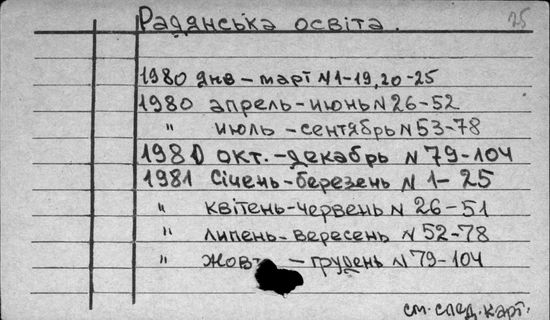 25
Радянська освіта.
1980 янв – март N 1-19, 20-25
1980 апрель-июнь N 26-52
" июль - сентябрь N 53-78
1980 окт. - декабрь N 79-104
1981 Січень-березень N 1-25
" квітень-червень N 26-51
" липень-вересень N 52-78
" – грудень N 79-104
см. след. карт.